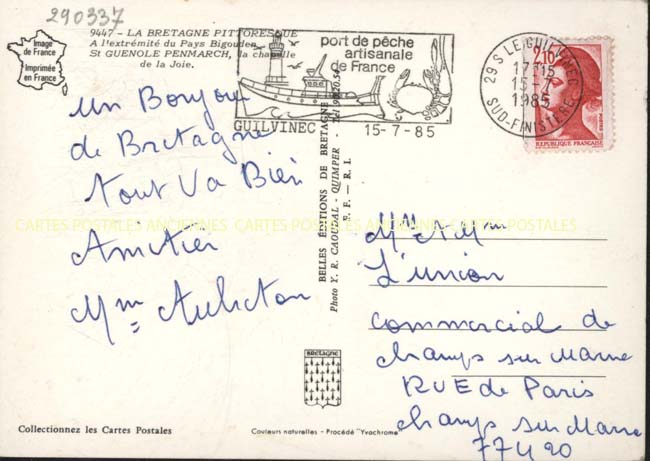 290337
9447 - LA BRETAGNE PITTORESQUE
A l'extrémité du Pays Bigouden
St GUENOLE PENMARCH, la chapelle
de la Joie.
Image
de France
Imprimée
en France
port de pêche
artisanale
de France
GUILVINEC
15-7-85
29 S LE GUILVINEC
17H15
15-7
1985
SUD-FINISTERE
2,10
REPUBLIQUE FRANÇAISE
un Bonjour
de Bretagne
tout va Bien
Amitiés
Mme
BELLES ÉDITIONS DE BRETAGNE
Photo Y. R. CAOUDAL - QUIMPER
E. F. - R. I.
CARTES POSTALES ANCIENNES CARTES POSTALES ANCIENNES CARTES POSTALES
L'union
commercial de
champs sur Marne
RUE de Paris
champs sur Marne
77420
BRETAGNE
Collectionnez les Cartes Postales
Couleurs naturelles - Procédé "Yvachrome"